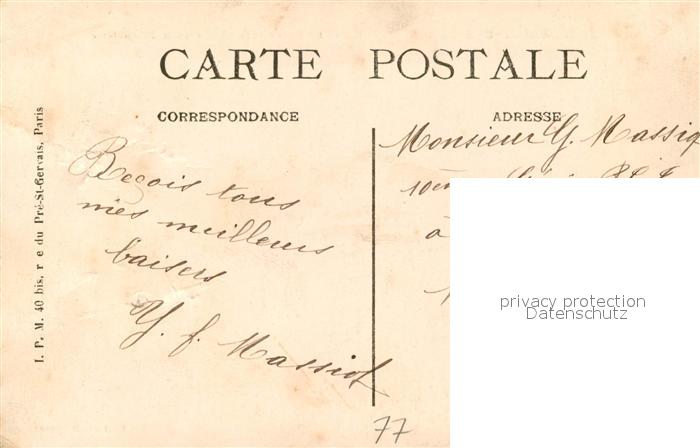 CARTE POSTALE
CORRESPONDANCE
ADRESSE
Reçois tous
mes meilleurs
baisers
Y. f. Massiot
Monsieur G. Massio
10em
à
77
I. P. M. 40 bis, r e du Pré-St-Gervais, Paris
privacy protection
Datenschutz